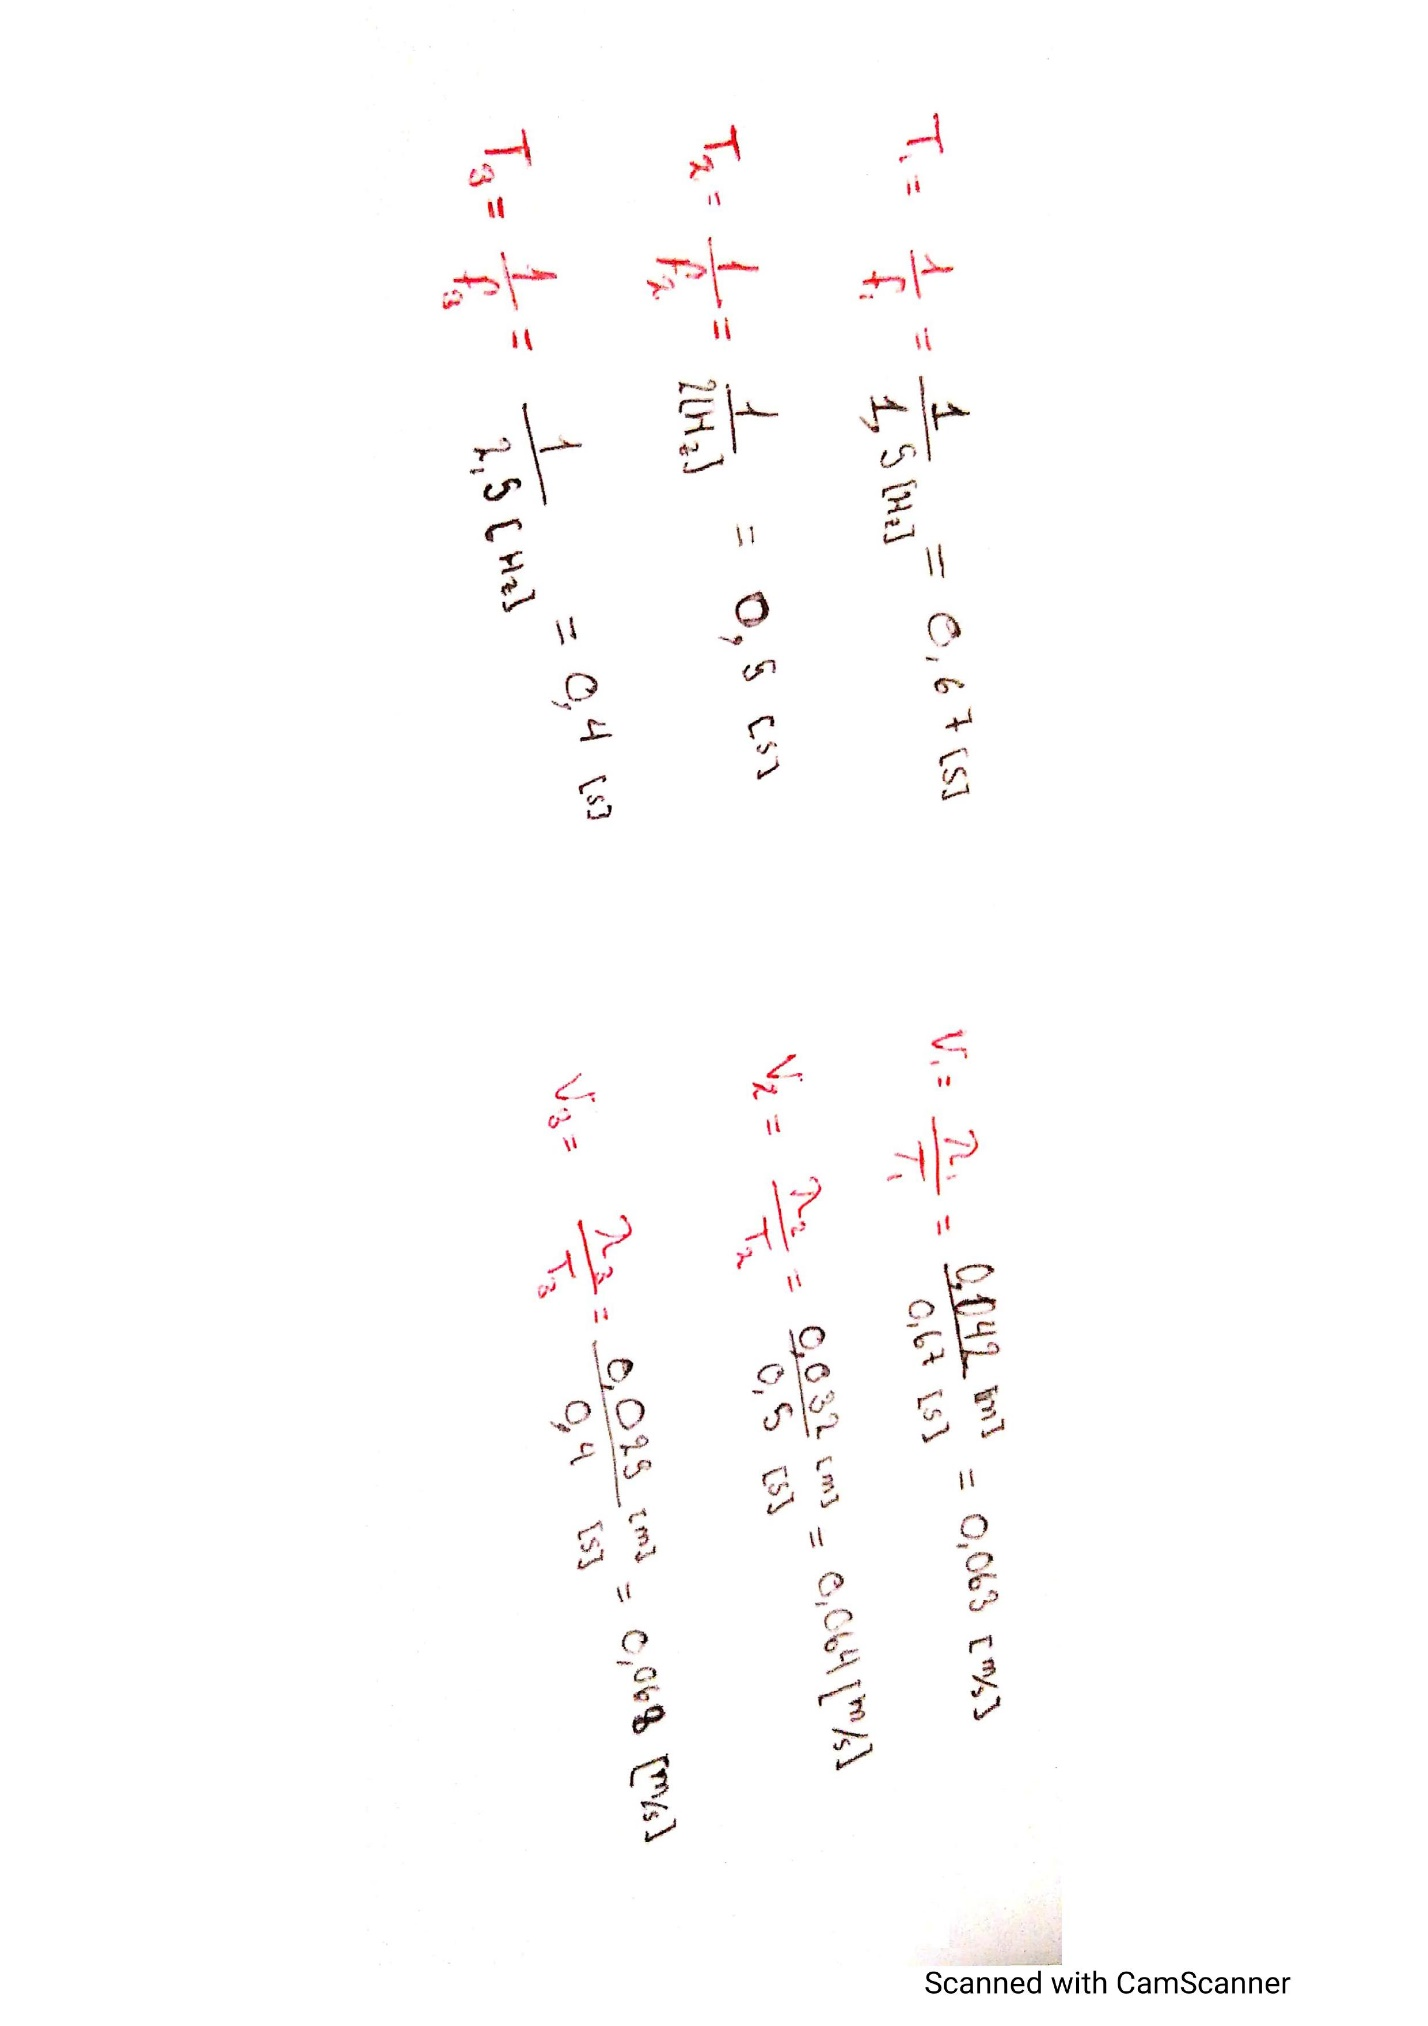 T₁ = 1/f₁ = 1/1,5 [Hz] = 0,67 [s]
T₂ = 1/f₂ = 1/2 [Hz] = 0,5 [s]
T₃ = 1/f₃ = 1/2,5 [Hz] = 0,4 [s]
V₁ = λ₁/T₁ = 0,042 [m]/0,67 [s] = 0,063 [m/s]
V₂ = λ₂/T₂ = 0,032 [m]/0,5 [s] = 0,064 [m/s]
V₃ = λ₃/T₃ = 0,029 [m]/0,4 [s] = 0,068 [m/s]
Scanned with CamScanner